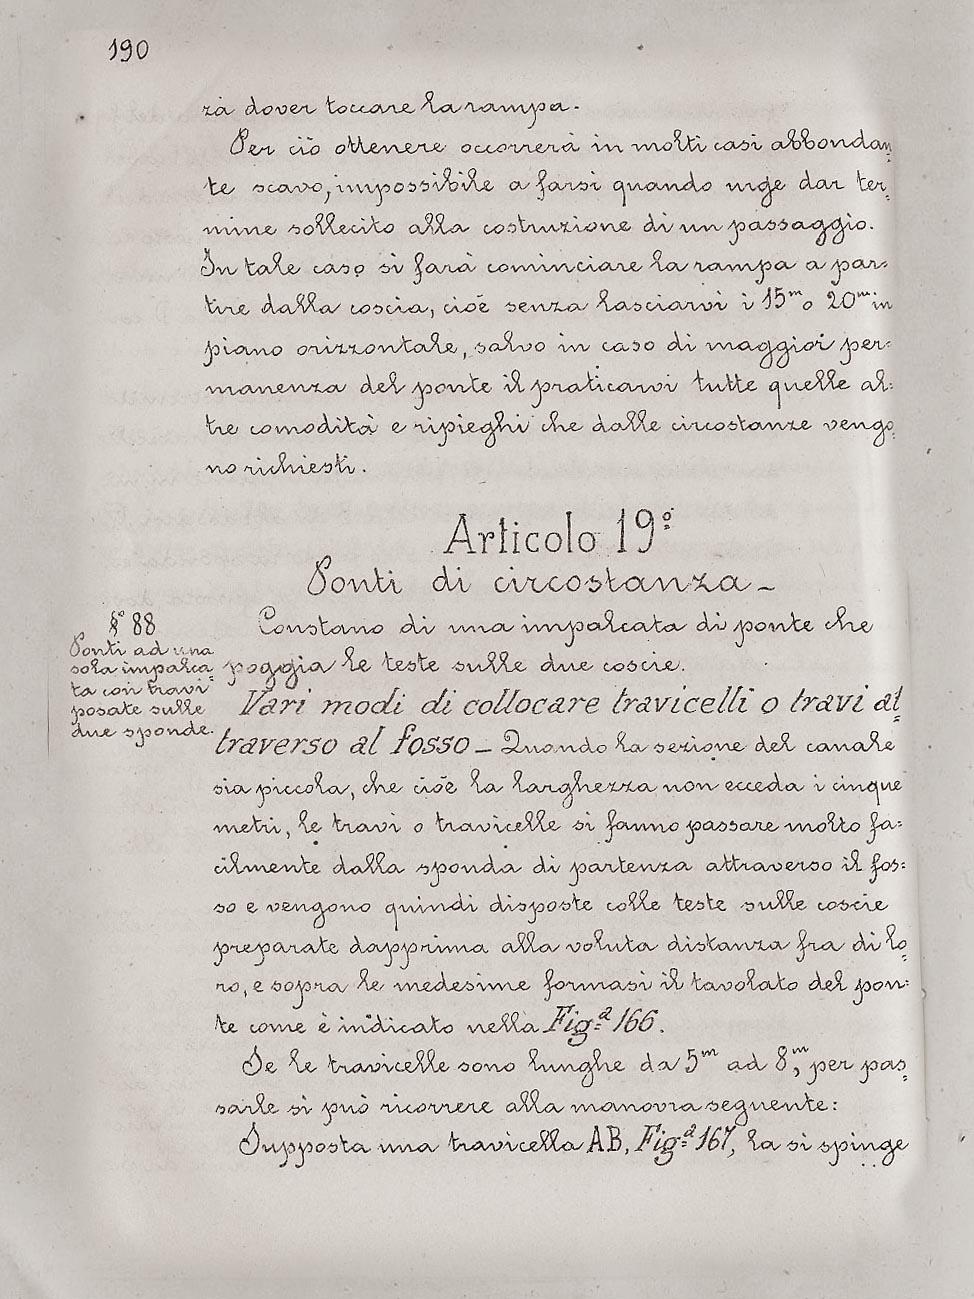 190
zà dover toccare la rampa.
Per ciò ottenere occorrerà in molti casi abbondan=
te scavo, impossibile a farsi quando urge dar ter=
mine sollecito alla costruzione di un passaggio.
In tale caso si farà cominciare la rampa a par=
tire dalla coscia, cioè senza lasciarvi i 15m o 20m in
piano orizzontale, salvo in caso di maggior per=
manenza del ponte il praticarvi tutte quelle al=
tre comodità e ripieghi che dalle circostanze vengo=
no richiesti.
Articolo 19º
Ponti di circostanza _
§º 88
Ponti ad una
sola impalca=
ta con travi
posate sulle
due sponde.
Constano di una impalcata di ponte che
poggia le teste sulle due coscie.
Vari modi di collocare travicelli o travi at=
traverso al fosso _ Quando la sezione del canale
sia piccola, che cioè la larghezza non ecceda i cinque
metri, le travi o travicelle si fanno passare molto fa=
cilmente dalla sponda di partenza attraverso il fos=
so e vengono quindi disposte colle teste sulle coscie
preparate dapprima alla voluta distanza fra di lo=
ro, e sopra le medesime formasi il tavolato del pon=
te come è indicato nella Fig.ª 166.
Se le travicelle sono lunghe da 5m ad 8m, per pas=
sarle si può ricorrere alla manovra seguente:
Supposta una travicella AB, Fig.ª 167, la si spinge